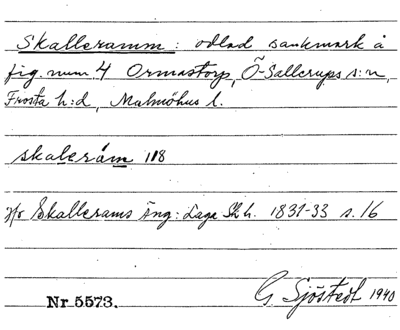 Skalleramm: odlad sankmark å
fig. num 4 Ormastorp, Ö-Sallerups s:n,
Frosta h:d, Malmöhus l.
skaleråm 118
Jfr Skallerams äng: Laga Sk h. 1831-33 s. 16
G. Sjöstedt 1940
Nr 5573.